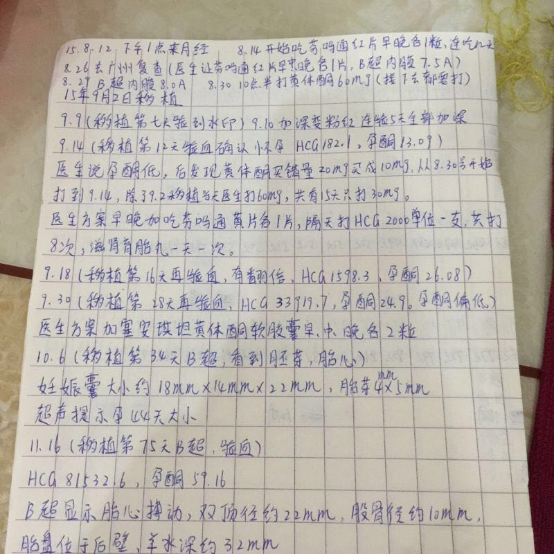 15.8.12 下午1点来月经 8.14开始吃芬吗通红片早晚各1粒,连吃12天
8.26去广州复查(医生让芬吗通红片早中晚各1片,B超内膜7.5A)
8.29 B超内膜8.0A 8.30 10点半打黄体酮60mg(接下去都要打)
15年9月2日移植
9.9(移植第七天验到水印) 9.10加深变粉红 连验5天全部加深
9.14(移植第12天验血确认怀孕 HCG182.1,孕酮13.09)
医生说孕酮低,后发现黄体酮买错量20mg买成10mg,从8.30号开始
打到9.14,除了9.2移植当天医生打60mg,共有15天只打30mg。
医生方案早晚加吃芬吗通黄片各1片,隔天打HCG 2000单位一支,共打
8次,滋肾育胎丸一天一次。
9.18(移植第16天再验血,有翻倍,HCG1598.3,孕酮26.08)
9.30(移植第28天再验血,HCG 33919.7,孕酮24.9。孕酮偏低)
医生方案加塞安琪坦黄体酮软胶囊早、中、晚各2粒
10.6(移植第34天B超,看到胚芽,胎心)
妊娠囊大小约18mm×14mm×22mm,胎芽4mm×5mm
超声提示孕44天大小
11.16(移植第75天B超,验血)
HCG 81532.6,孕酮59.16
B超显示胎心搏动,双顶径约22mm,股骨径约10mm,
胎盘位于后壁,羊水深约32mm